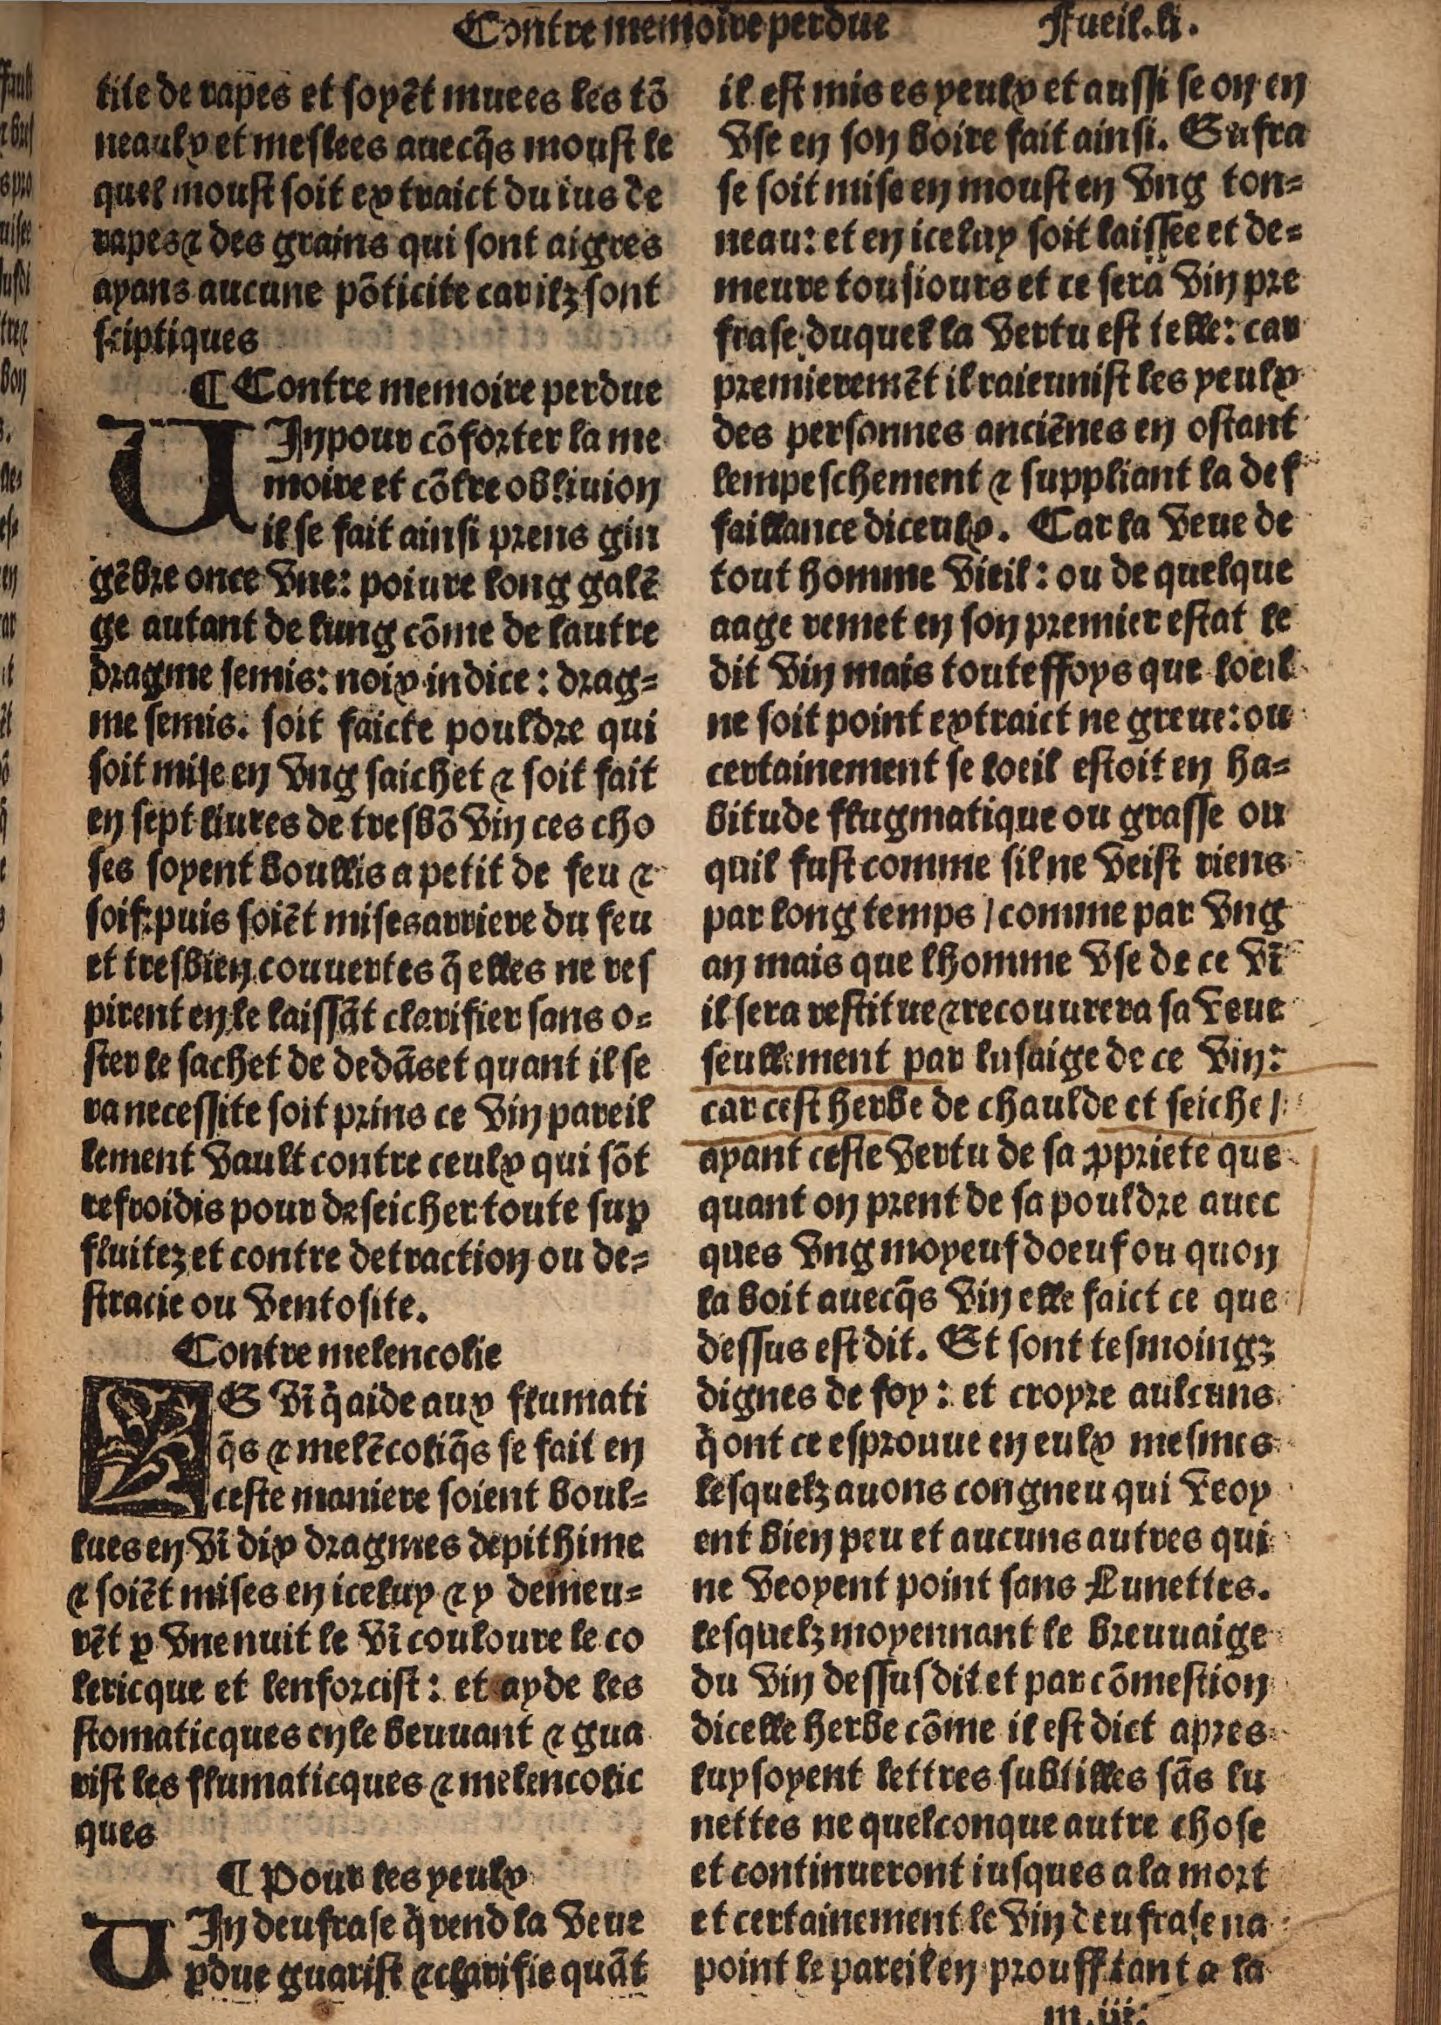 Contre memoire perdue Fueil.li.
tile de rapes et soyēt muees les tō
neaulx et meslees auecq̄s moust le
quel moust soit extraict du ius de
rapes ⁊ des grains qui sont aigres
ayans aucune pōticite car ilz sont
stiptiques
¶ Contre memoire perdue
UIn pour cōforter la me
moire et cōtre obliuion
il se fait ainsi prens gin
gēbre once vne: poiure long galē
ge autant de lung cōme de lautre
dragme semis: noix indice: drag-
me semis. soit faicte pouldre qui
soit mise en vng saichet ⁊ soit fait
en sept liures de tresbō vin ces cho
ses soyent boullis a petit de feu ⁊
soif: puis soiēt mises arriere du feu
et tresbien couuertes q̄ elles ne res
pirent en le laissāt clarifier sans o-
ster le sachet de dedās et quant il se
ra necessite soit prins ce vin pareil
lement vault contre ceulx qui sōt
refroidis pour deseicher toute sup
fluitez et contre detraction ou de-
stracie ou ventosite.
Contre melencolie
LE vī q̄ aide aux flumati
q̄s ⁊ melēcoliq̄s se fait en
ceste maniere soient boul-
lues en vī dix dragmes depithime
⁊ soiēt mises en iceluy ⁊ y demeu-
rēt ꝑ vne nuit le vī couloure le co
lericque et lenforcist: et ayde les
stomaticques en le beuuant ⁊ gua
rist les flumaticques ⁊ melencolic
ques
¶ Pour les yeulx
UIn deufrase q̄ rend la veue
ꝑdue guarist ⁊ clarifie quāt
il est mis es yeulx et aussi se on en
vse en son boire fait ainsi. Eufra
se soit mise en moust en vng ton-
neau: et en iceluy soit laissee et de-
meure tousiours et ce sera vin pre
frase duquel la vertu est telle: car
premieremēt il raieunist les yeulx
des personnes anciēnes en ostant
lempeschement ⁊ suppliant la def
faillance diceulx. Car la veue de
tout homme vieil: ou de quelque
aage remet en son premier estat le
dit vin mais touteffoys que loeil
ne soit point extraict ne greue: ou
certainement se loeil estoit en ha-
bitude flugmatique ou grasse ou
quil fust comme sil ne veist riens
par long temps / comme par vng
an mais que lhomme vse de ce vī
il sera restitue ⁊ recouurera sa veue
seullement par lusaige de ce vin:
car cest herbe de chaulde et seiche /
ayant ceste vertu de sa ꝓpriete que
quant on prent de sa pouldre auec
ques vng moyeuf doeuf ou quon
la boit auecq̄s vin elle faict ce que
dessus est dit. Et sont tesmoingz
dignes de foy: et croyre aulcuns
q̄ ont ce esprouue en eulx mesmes
lesquelz auons congneu qui veoy
ent bien peu et aucuns autres qui
ne veoyent point sans Lunettes.
lesquelz moyennant le breuuaige
du vin dessusdit et par cōmestion
dicelle herbe cōme il est dict apres
luysoyent lettres subtilles sās lu
nettes ne quelconque autre chose
et continueront iusques a la mort
et certainement le vin deufrase na
point le pareil en prouffitant a la
m.iii.